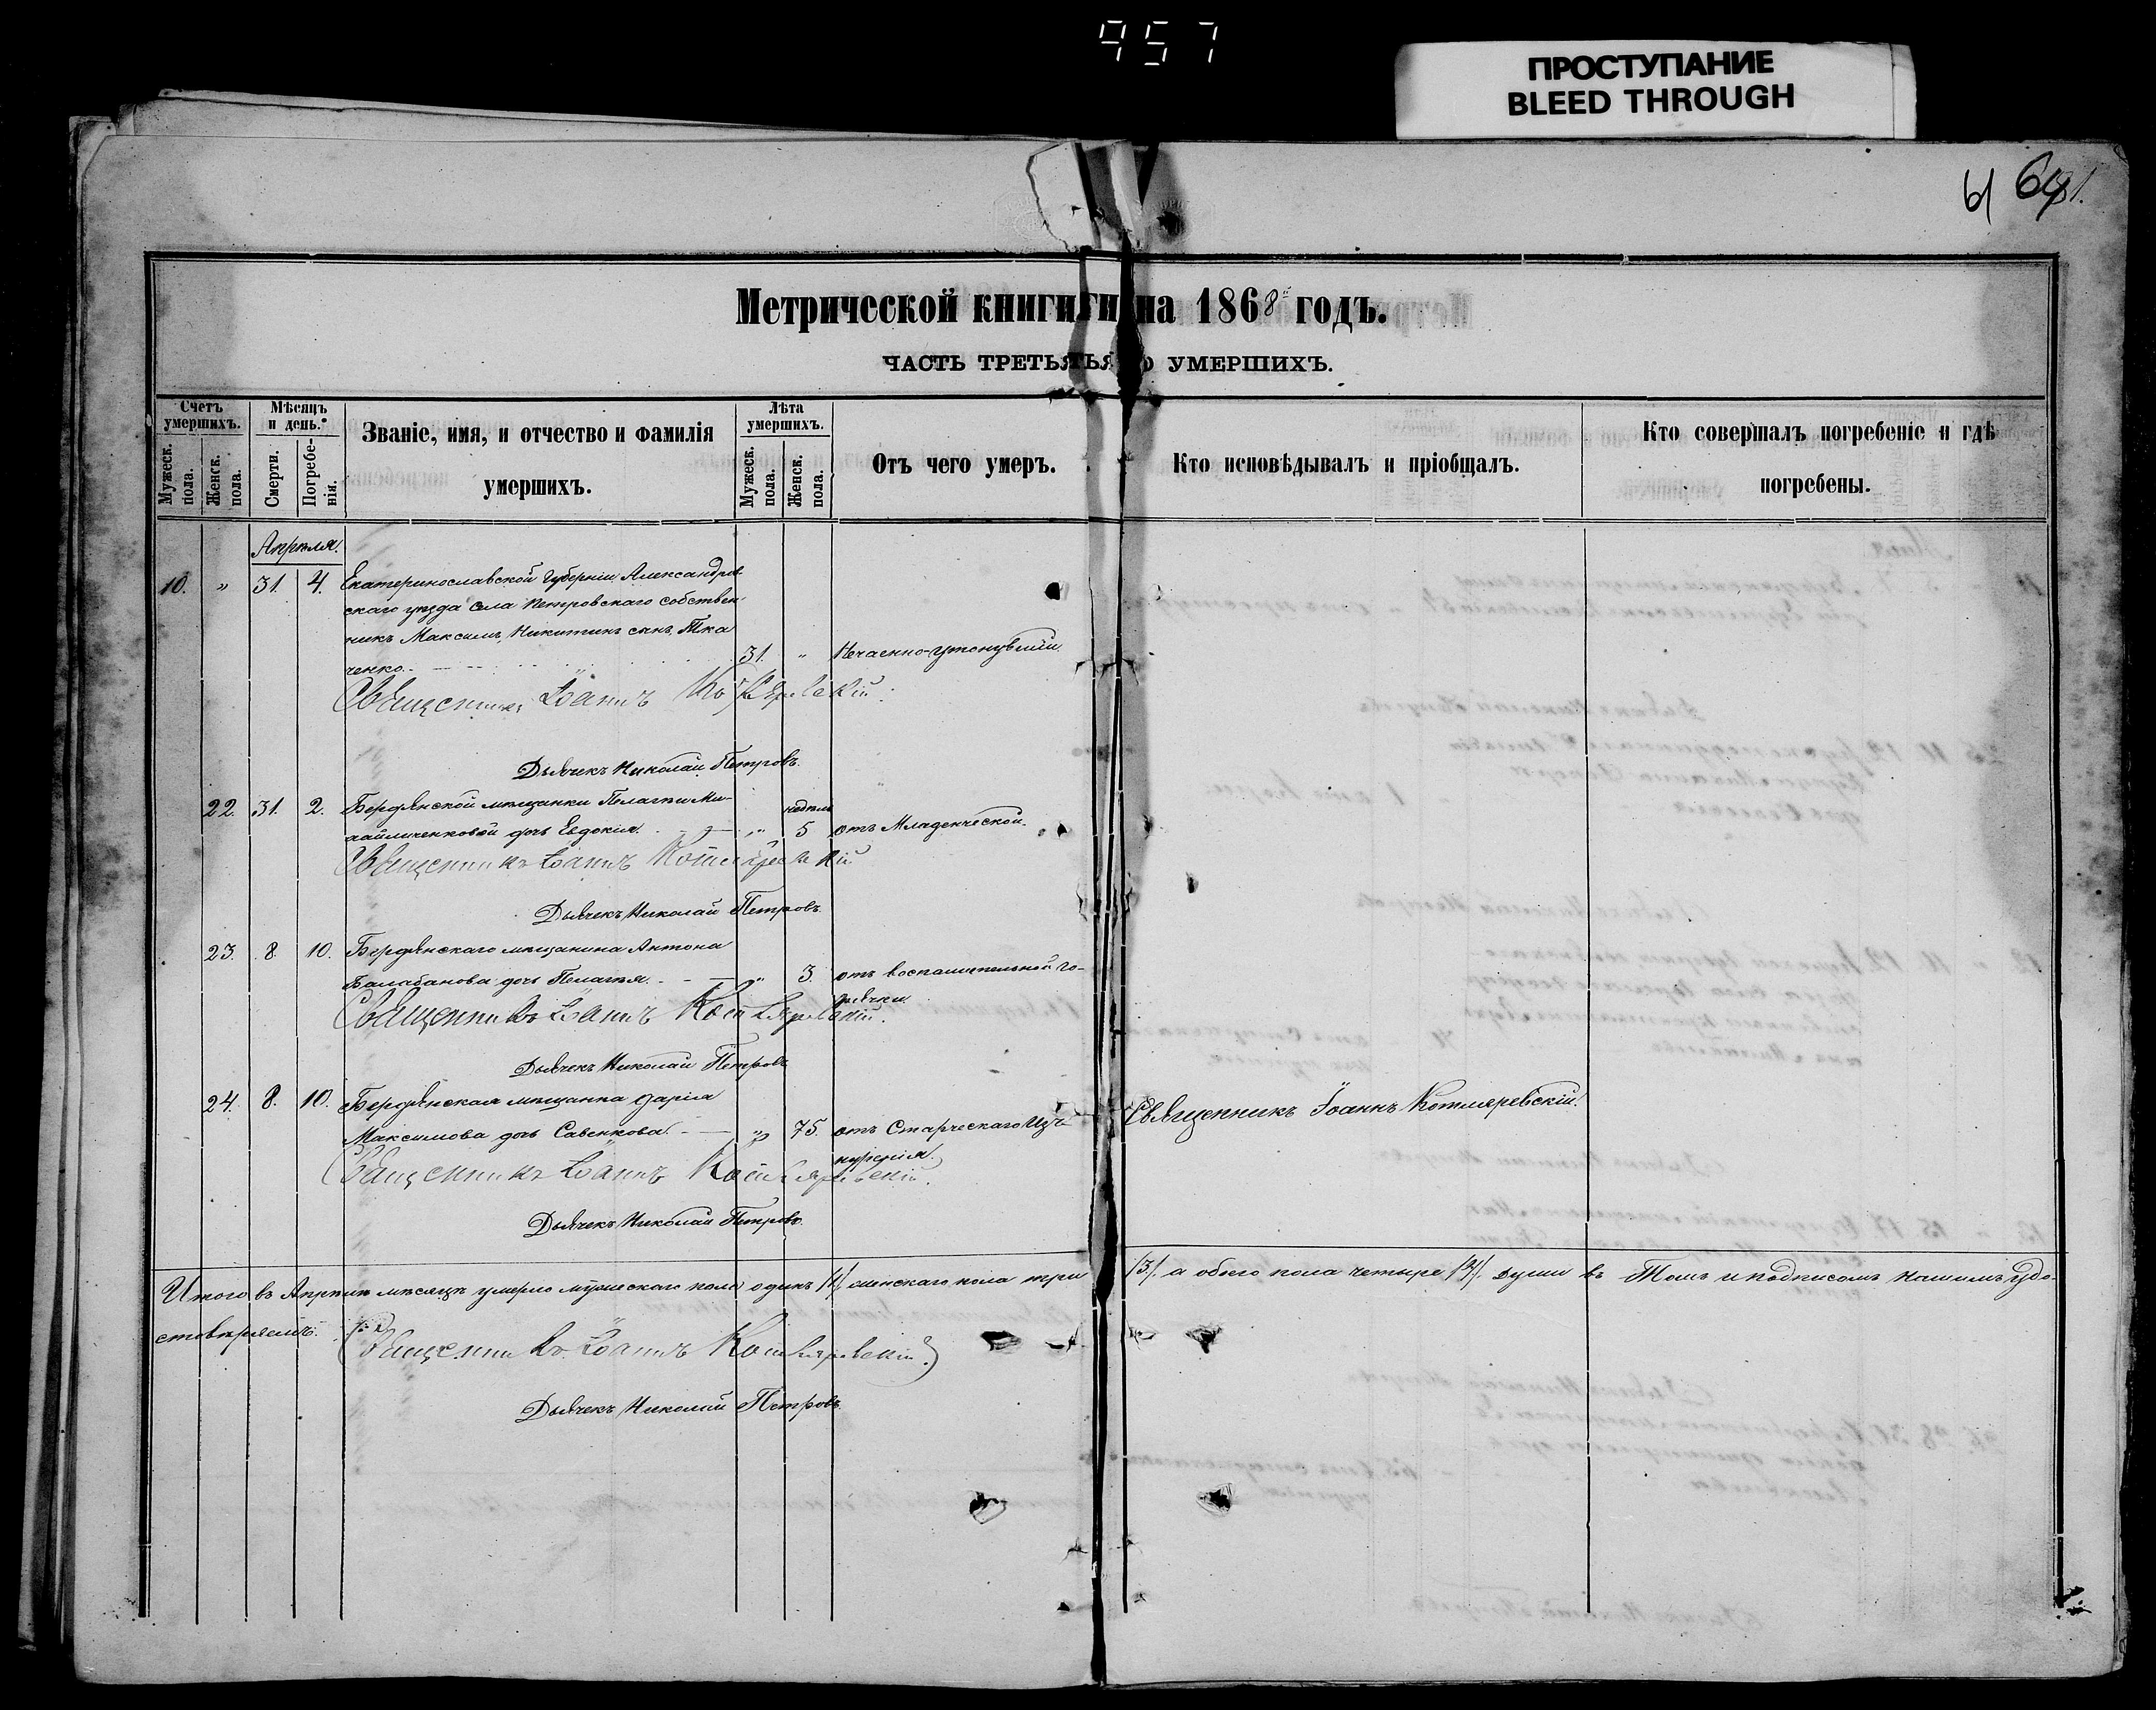 957
ПРОСТУПАНИЕ
BLEED THROUGH
61
Метрической книгиги на 1868 годъ.
ЧАСТЬ ТРЕТЬЯТЬЯ О УМЕРШИХЪ.
Счетъ умершихъ.
Мужеск. пола.
Женск. пола.
Мѣсяцъ и день.
Смерти.
Погребенія.
Званіе, имя, и отчество и фамилія
умершихъ.
Лѣта умершихъ.
Мужеск. пола.
Женск. пола.
Отъ чего умеръ.
Кто исповѣдывалъ и пріобщалъ.
Кто совершалъ погребеніе и гдѣ
погребены.
Апрѣля.
10. " 31. 4. Екатеринославской Губерніи Александров-
скаго уѣзда села Петровскаго собствен-
никъ Максимъ, Никитинъ сынъ, Тка
ченко. 31. " Нечаенно-утонувшій.
Священникъ Іоаннъ Котляревскій.
Дьячекъ Николай Петровъ.
22. 31. 2. Бердянской мѣщанки Пелагѣи Ми-
хайличенковой дочь Евдокія. " недѣль 5 отъ Младенческой.
Священникъ Іоаннъ Котляревскій
Дьячекъ Николай Петровъ.
23. 8. 10. Бердянскаго мѣщанина Антона
Балабанова дочь Пелагѣя. " 3. отъ воспалительной го-
рячки.
Священникъ Іоаннъ Котляревскій.
Дьячекъ Николай Петровъ
24. 8. 10. Бердянская мѣщанка Дарія
Максимова дочь Савенкова. " 75. отъ Старческаго Изъ-
нуренія. Священникъ Іоаннъ Котляревскій.
Священникъ Іоаннъ Котляревскій.
Дьячекъ Николай Петровъ.
Итого въ Апрѣлѣ мѣсяцѣ умерло мужескаго пола одинъ /1/, женскаго пола три /3/. а обоего пола четыре /4/. души въ Томъ и подписомъ нашимъ удо-
стовѣряемъ.
Священникъ Іоаннъ Котляревскій
Дьячекъ Николай Петровъ.